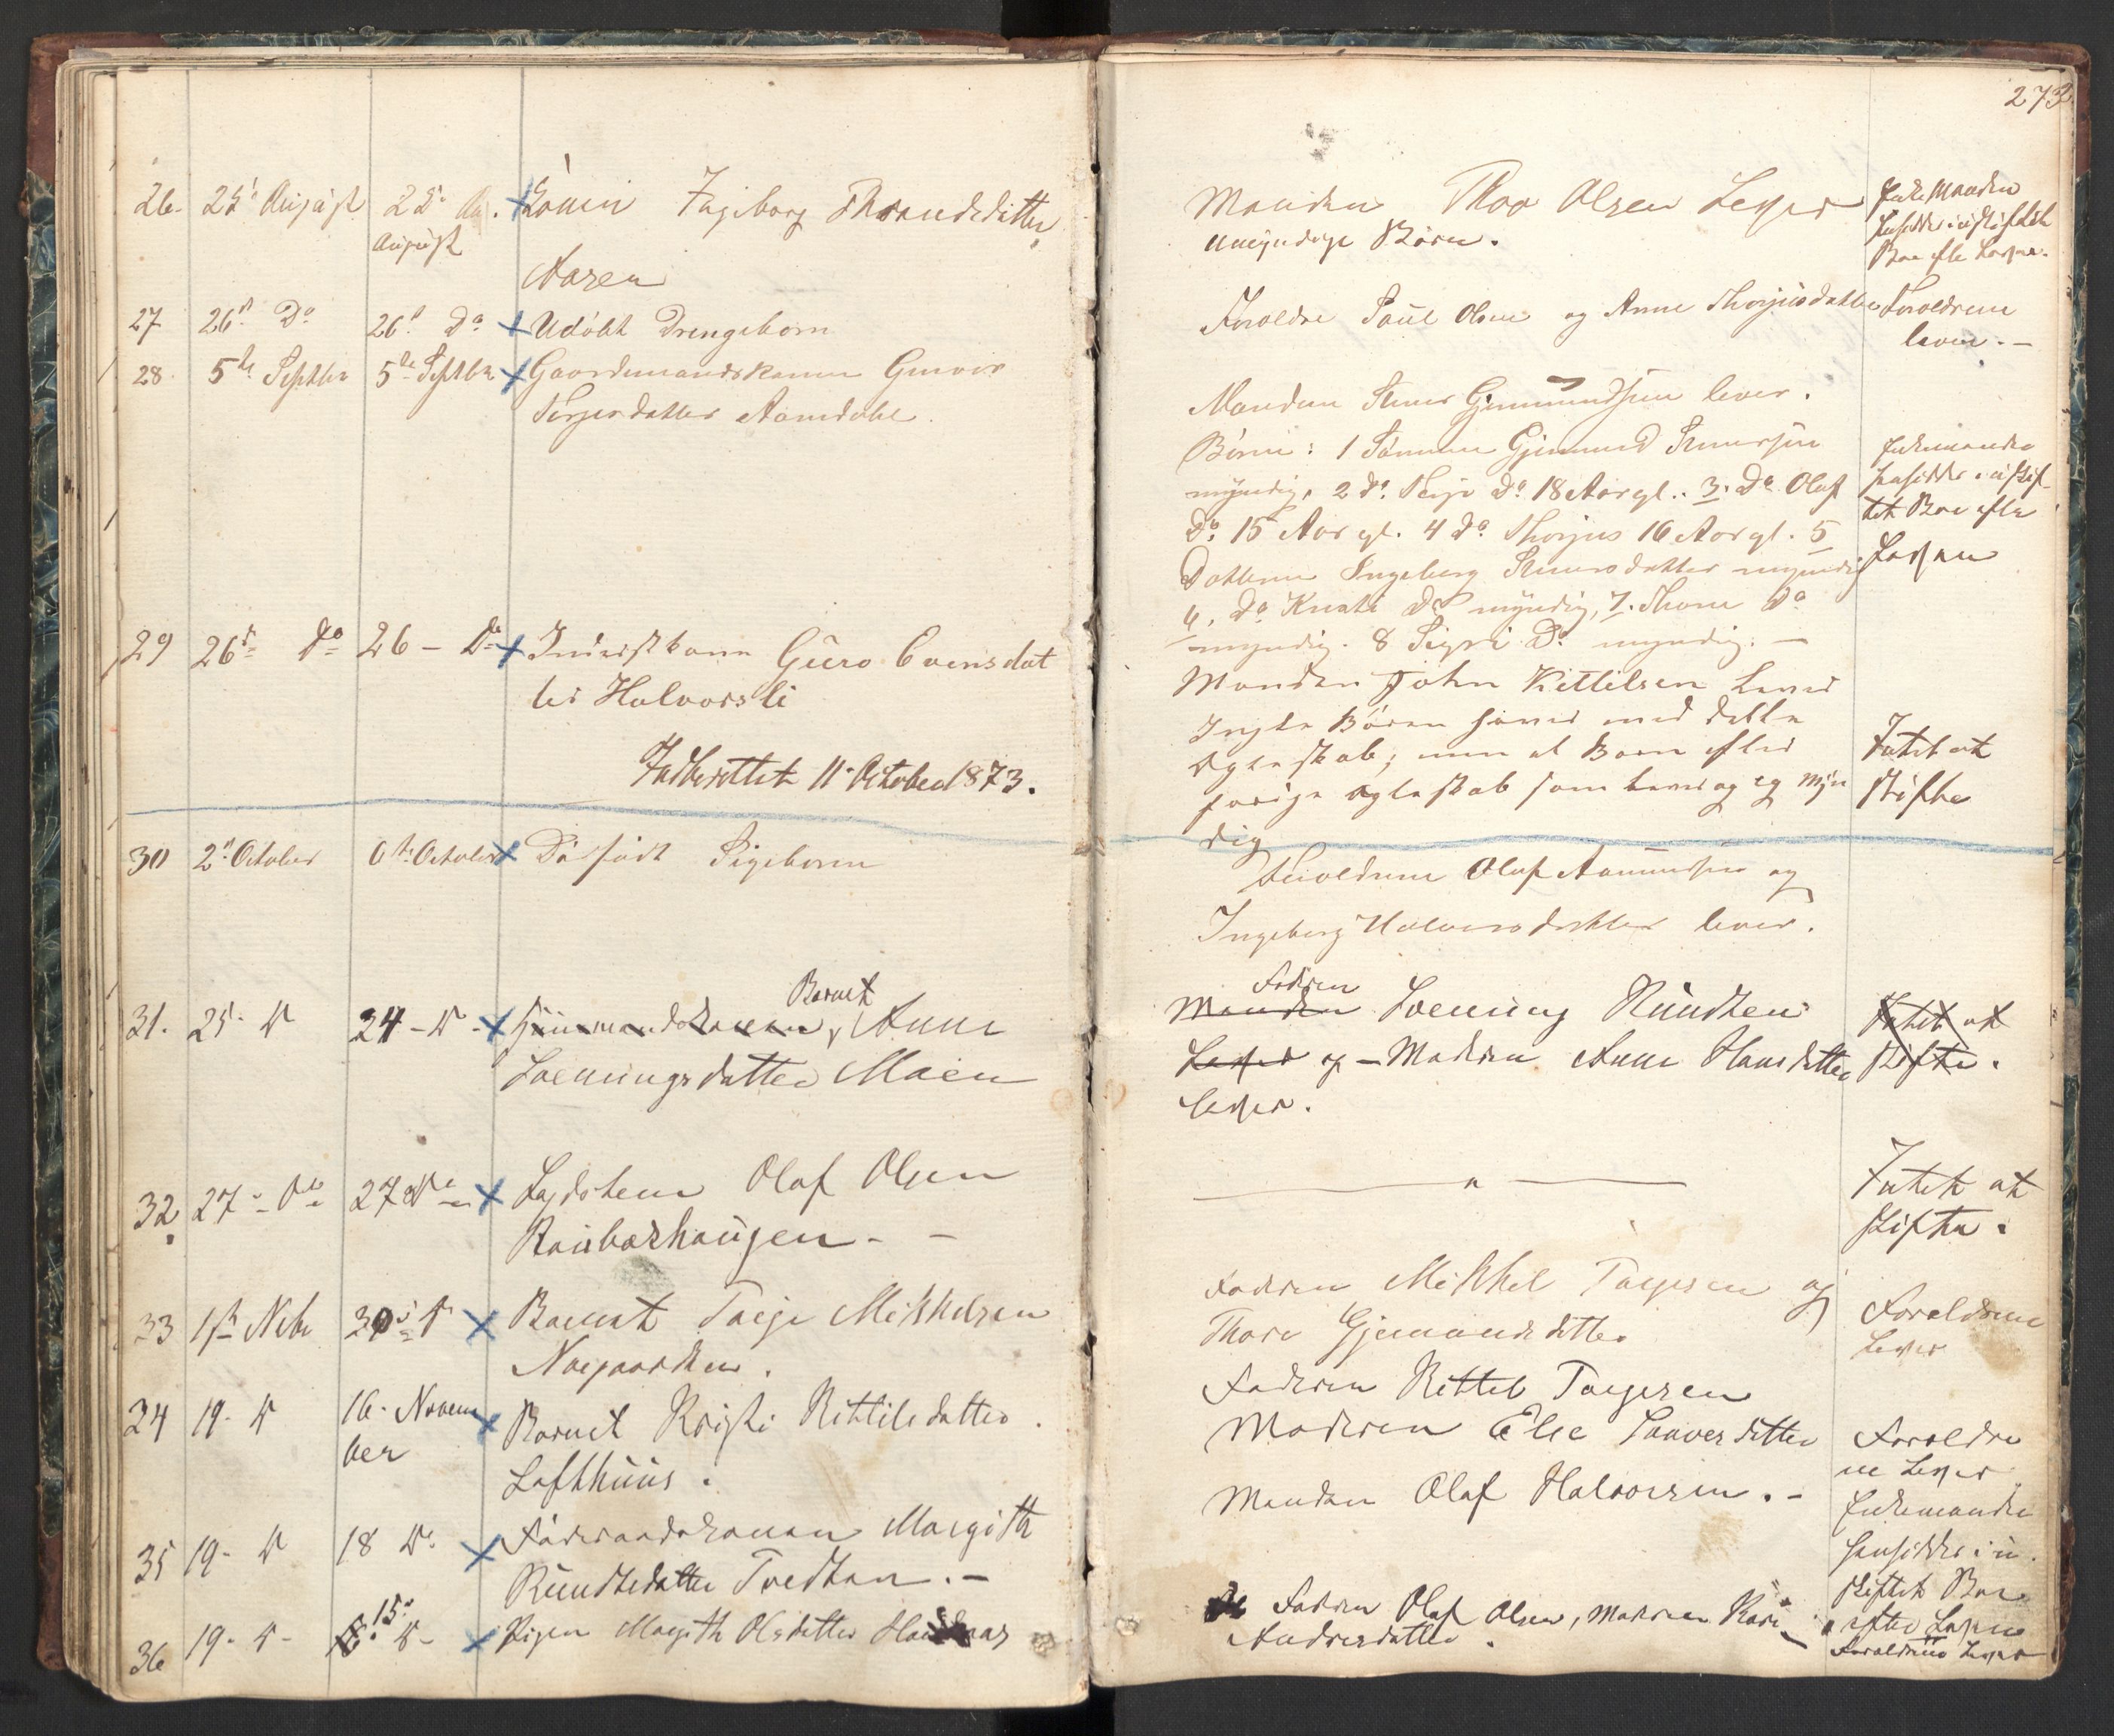 273
26. 25 August 25 August Konen Ingeborg Throndsdatter
Aasen
Manden Thor Olsen Lever
umyndige Børn.
Enkemanden
hensidder i uskiftet
Boe efter Loven.
27 26d Do 26d Do Udøbt Drengebarn
Foreldre Paul Olsen og Anne Thorjusdatter
Foreldrene
lever. -
28 5te Septbr 5te Septbr Gaardmandskonen Gunvor
Terjesdatter Aamdahl
Manden Stener Gjermundsen lever.
Børn: 1 Sønnen Gjermund Stenersen
myndig, 2 do. Terje Do. 18 Aar gl. 3. Do Olaf
Do. 15 Aar gl. 4 Do Thorjus 16 Aar gl. 5
Datteren Ingeborg Stenersdatter myndig
6. Do Do myndig, 7. Thone Do
myndig. 8 Sigri Do myndig. -
Enkemanden
hensidder i uskif
tet Boe efter
Loven
29 26d Do 26 - Do Inderstkone Guro Evensdat
ter Halvorsli
Manden John Kittilsen Lever
Ingen Børen haver med dette
Egteskab; men et Barn efter
forige Egteskab som Lever og eg Myn
dig
Intet at
skifte
Indberettet 11. October 1873.
30 2d October 6te October Dødfødt Pigebarn
Foreldrene Olaf Aamundsen og
Ingeborg Halvorsdatter lever.
31. 25. D 24 - D - Huusmandskonen, Barnet Anne
Loevningsdatter Moen
Manden Fadren Loevning Knudsen
Lever og - Moderen Anne Hansdatter
Lever.
Intet at
skifte.
32. 27 - Do 27 Do Lægdslem Olaf Olsen
Raubærhaugen - -
Intet at
skifte.
33 1ste Nbr 30 D Barnet Tarje Mikkelsen
Norgaarden.
Fadren Mikkel Tarjesen og
Thore Gjermundsdatter
Foreldrene
Lever
34 19. D 16. Novem
ber Barnet Kristi Kittilsdatter.
Lofthuus.
Faderen Kittel Tarjesen
Moderen Else Sauversdatter
Foreldre
ne Lever
35 19. D 18 D. Føderaadskonen Margith
Knudsdatter Tvedten. -
Manden Olaf Halvorsen. -
Enkemanden
hensidder i u.
skiftet Boe
efter Loven
36 19. D - 15. D - Pigen Margith Olsdatter
Fadren Olaf Olsen, Modren Kari
Andresdatter.
Foreldrene Lever